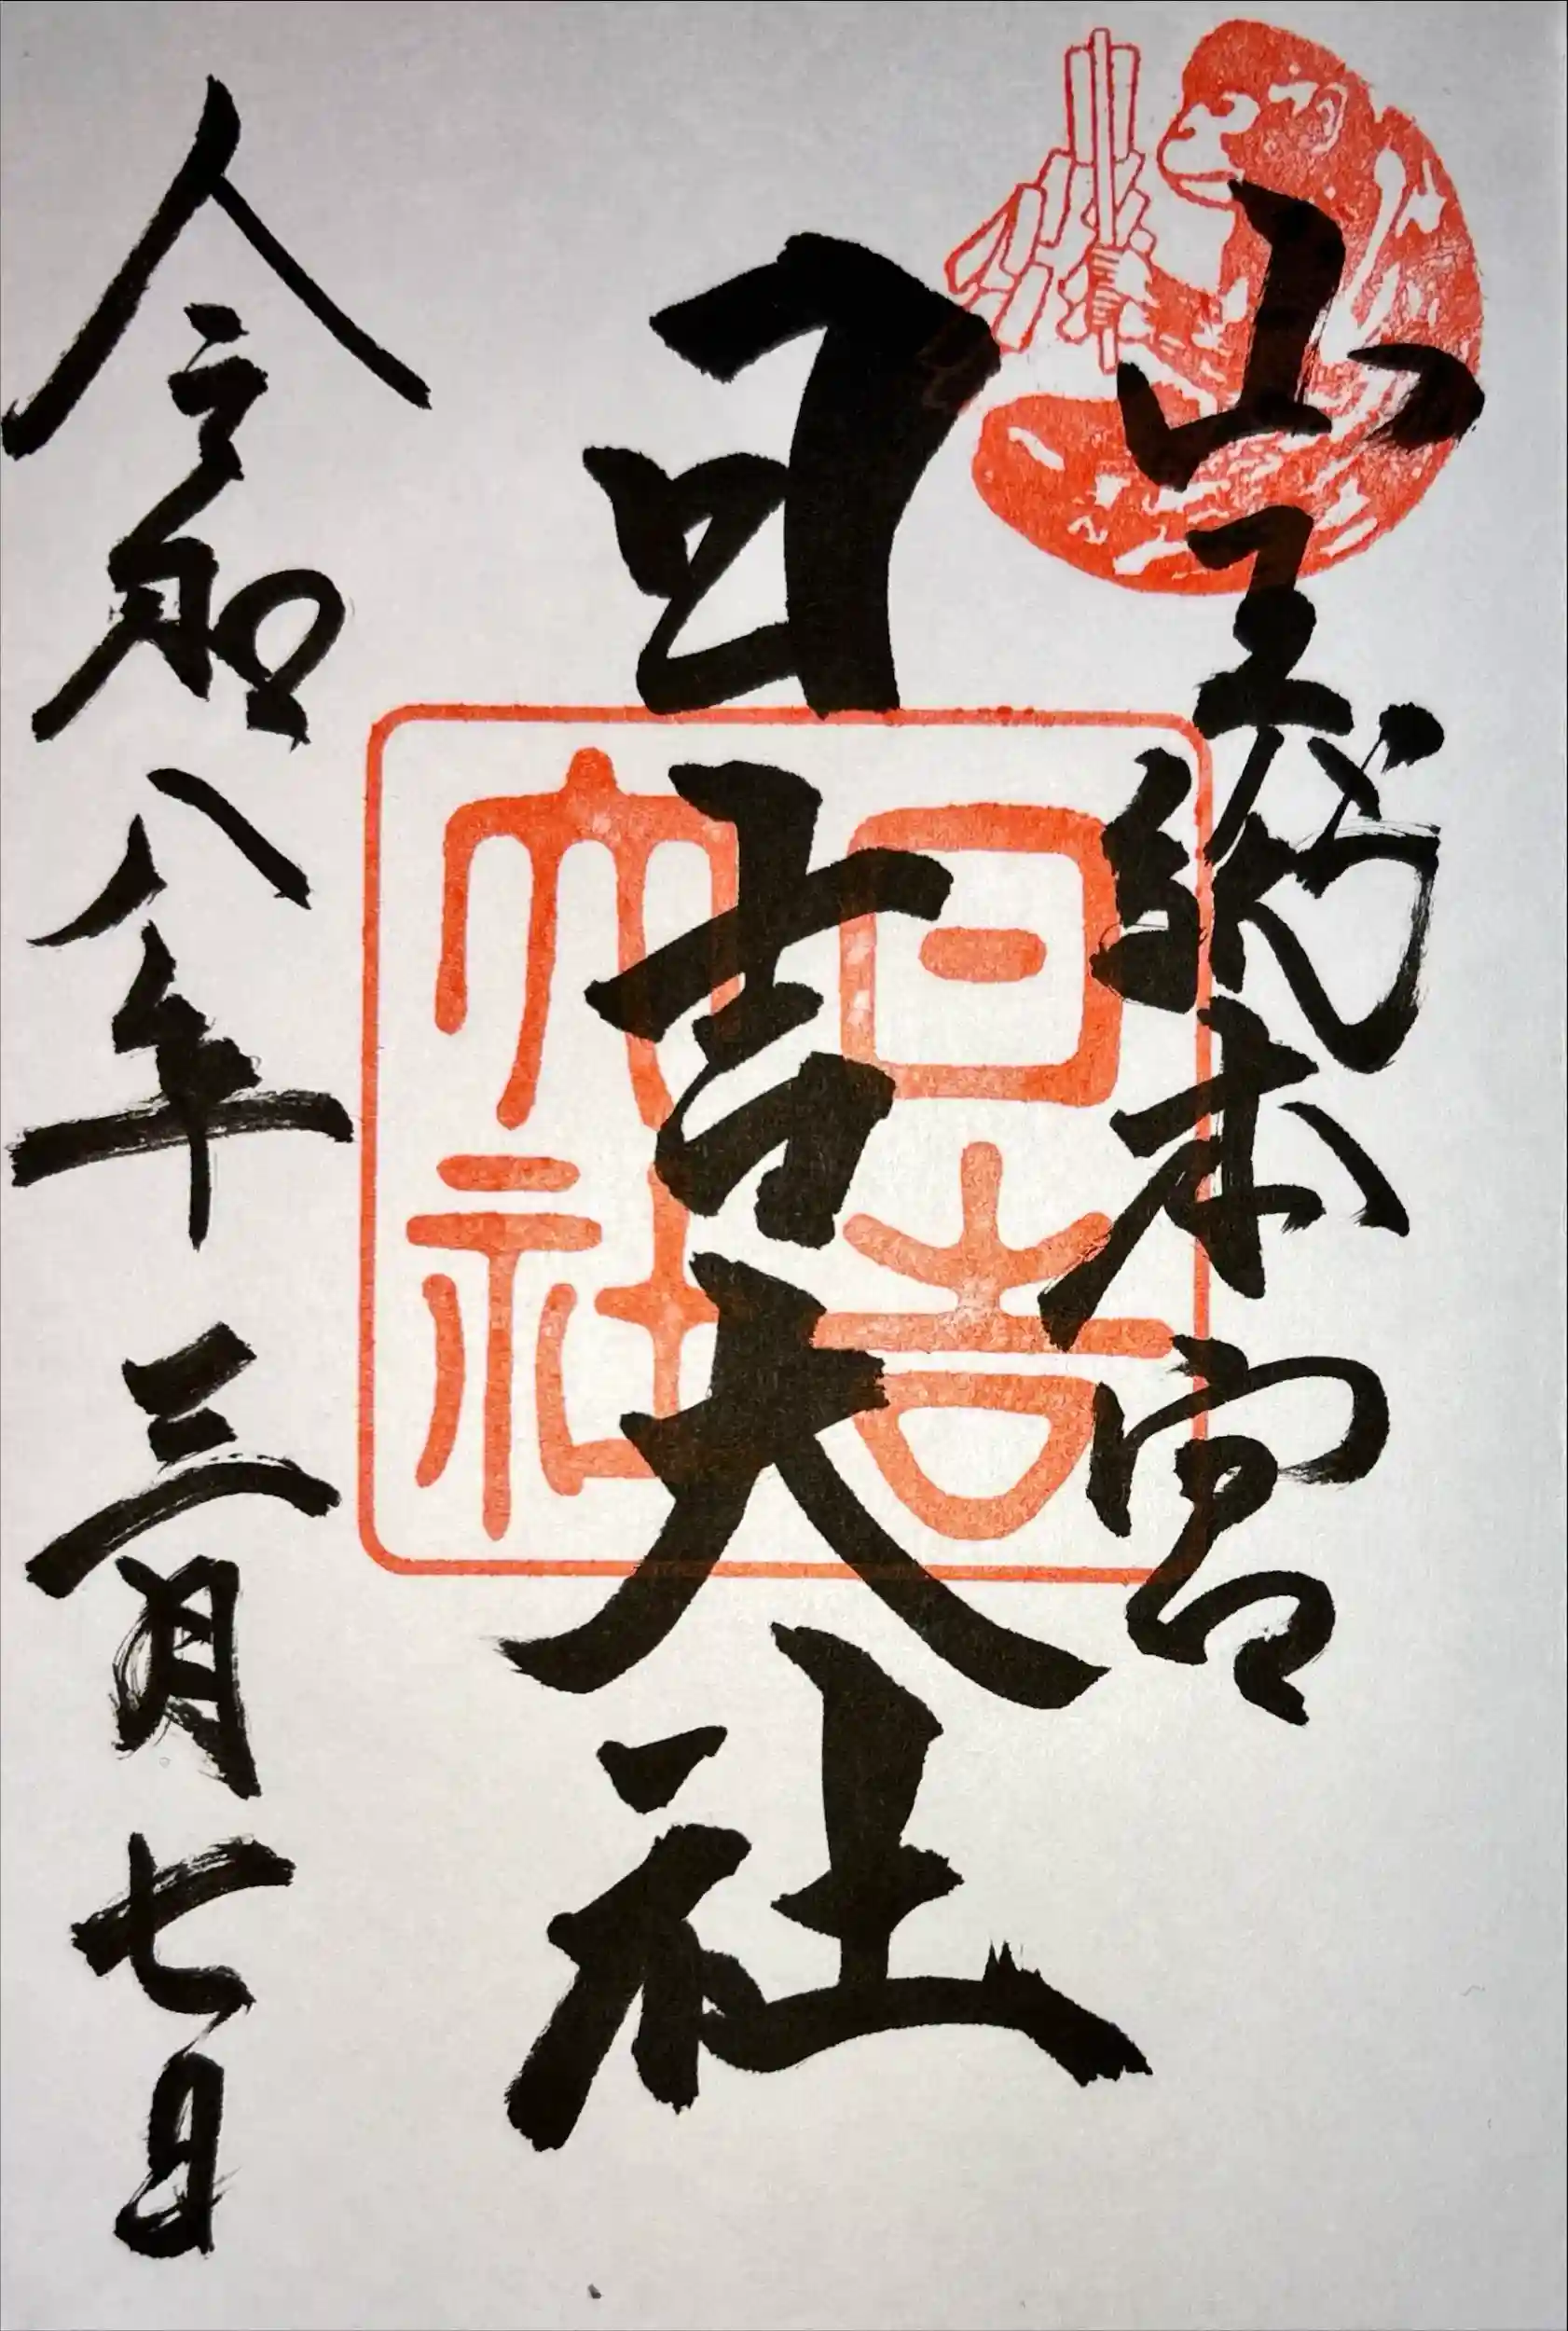 山王総本宮
日吉大社
日吉大社
令和八年三月七日